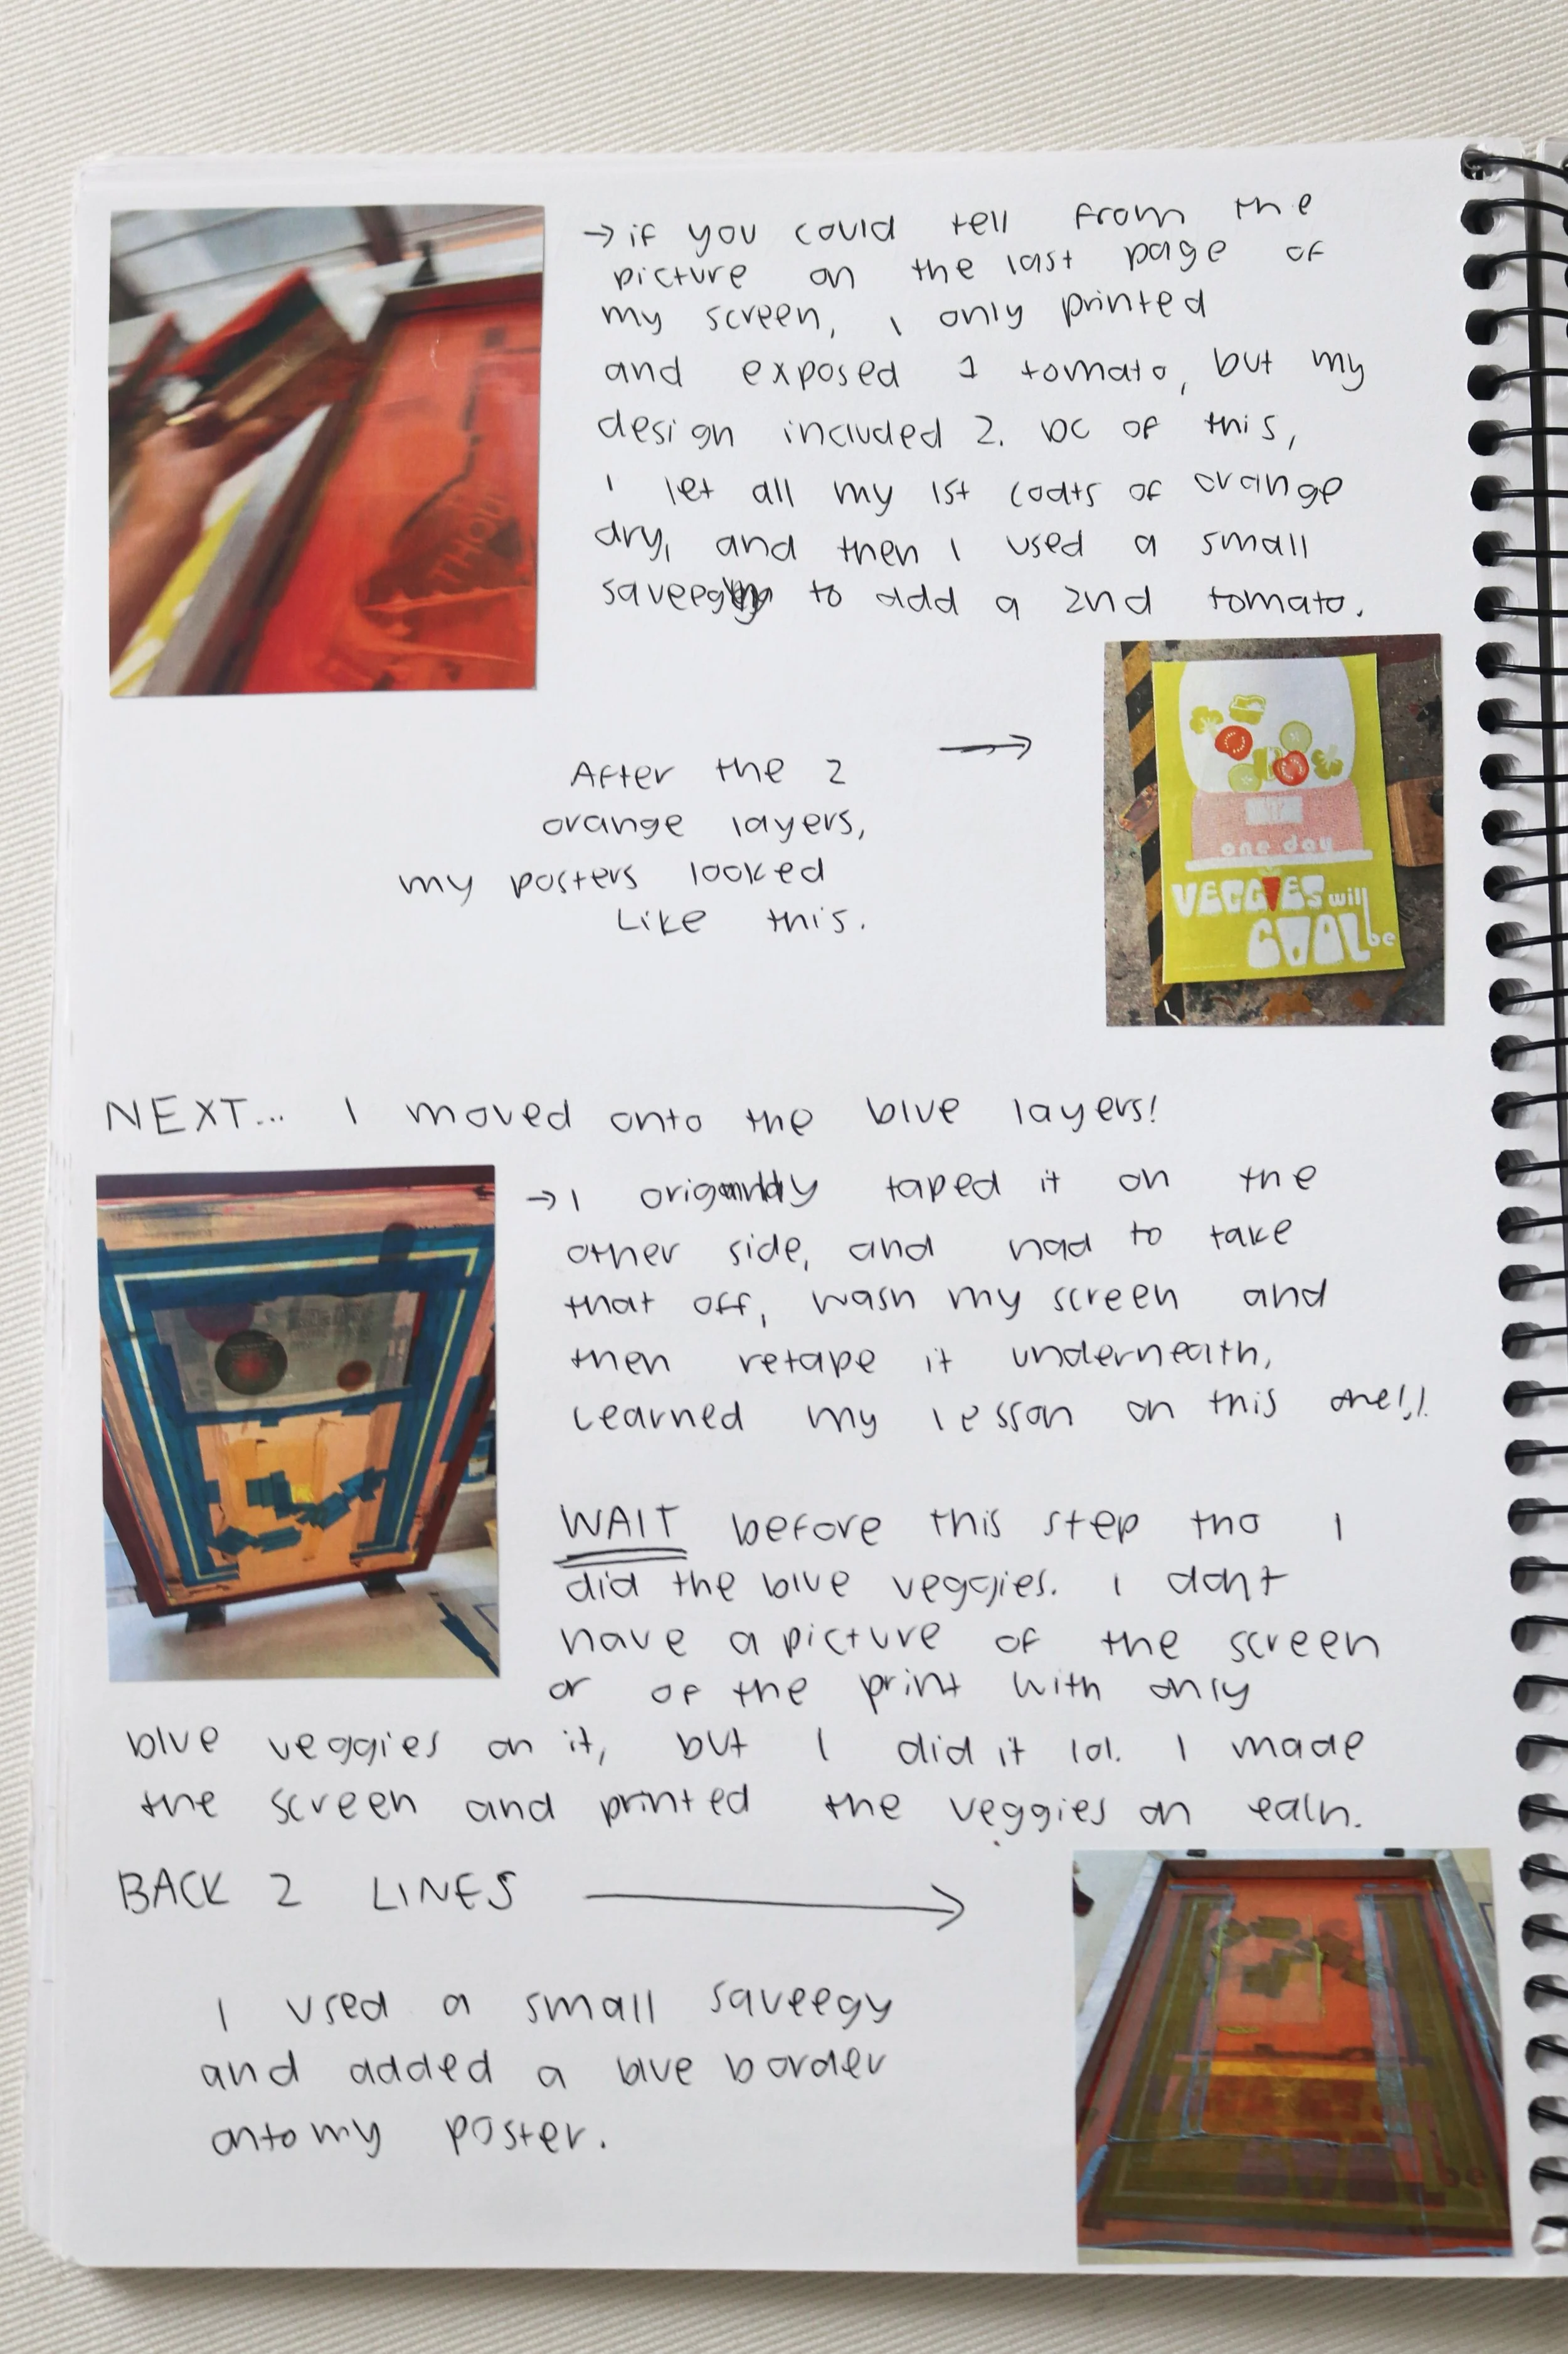 → if you could tell from the
picture on the last page of
my screen, I only printed
and exposed 1 tomato, but my
design included 2. bc of this,
I let all my 1st coats of orange
dry, and then I used a small
to add a 2nd tomato.
THOU
After the 2 →
orange layers,
my posters looked
like this.
one day
VEGGIES will
COOL be
NEXT... I moved onto the blue layers!
→ I originally taped it on the
other side, and had to take
that off, wash my screen and
then retape it underneath,
learned my lesson on this one!!!
WAIT before this step tho I
did the blue veggies. I dont
have a picture of the screen
or of the print with only
blue veggies on it, but I did it lol. I made
the screen and printed the veggies on each.
BACK 2 LINES →
I used a small squeegy
and added a blue border
onto my poster.
be